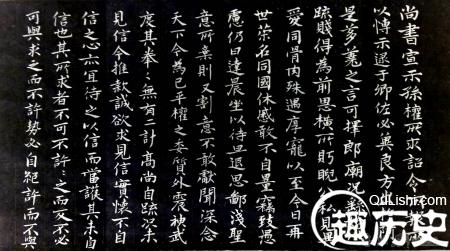 尚書宣示孫權所求詔令
以博示逮于卿佐必冀良方
是芻蕘之言可擇郎廟況繇
疏賤得為前恩橫所盱睨公私見異
愛同骨肉殊遇厚寵以至今日再
世榮名同國休慼敢不自量竊致愚
慮仍日達晨坐以待旦退思鄙淺聖
意所棄則又割意不敢獻聞深念
天下今為已平權之委質外震神武
度其拳々無有二計高尚自疏況未
見信今推款誠欲求見信實懷不自
信之心亦宜待之以信而當護其未自
信也其所求者不可不許々之而反不必
可與求之而不許勢必自絕許而不與
QULiShi.com
趣历史